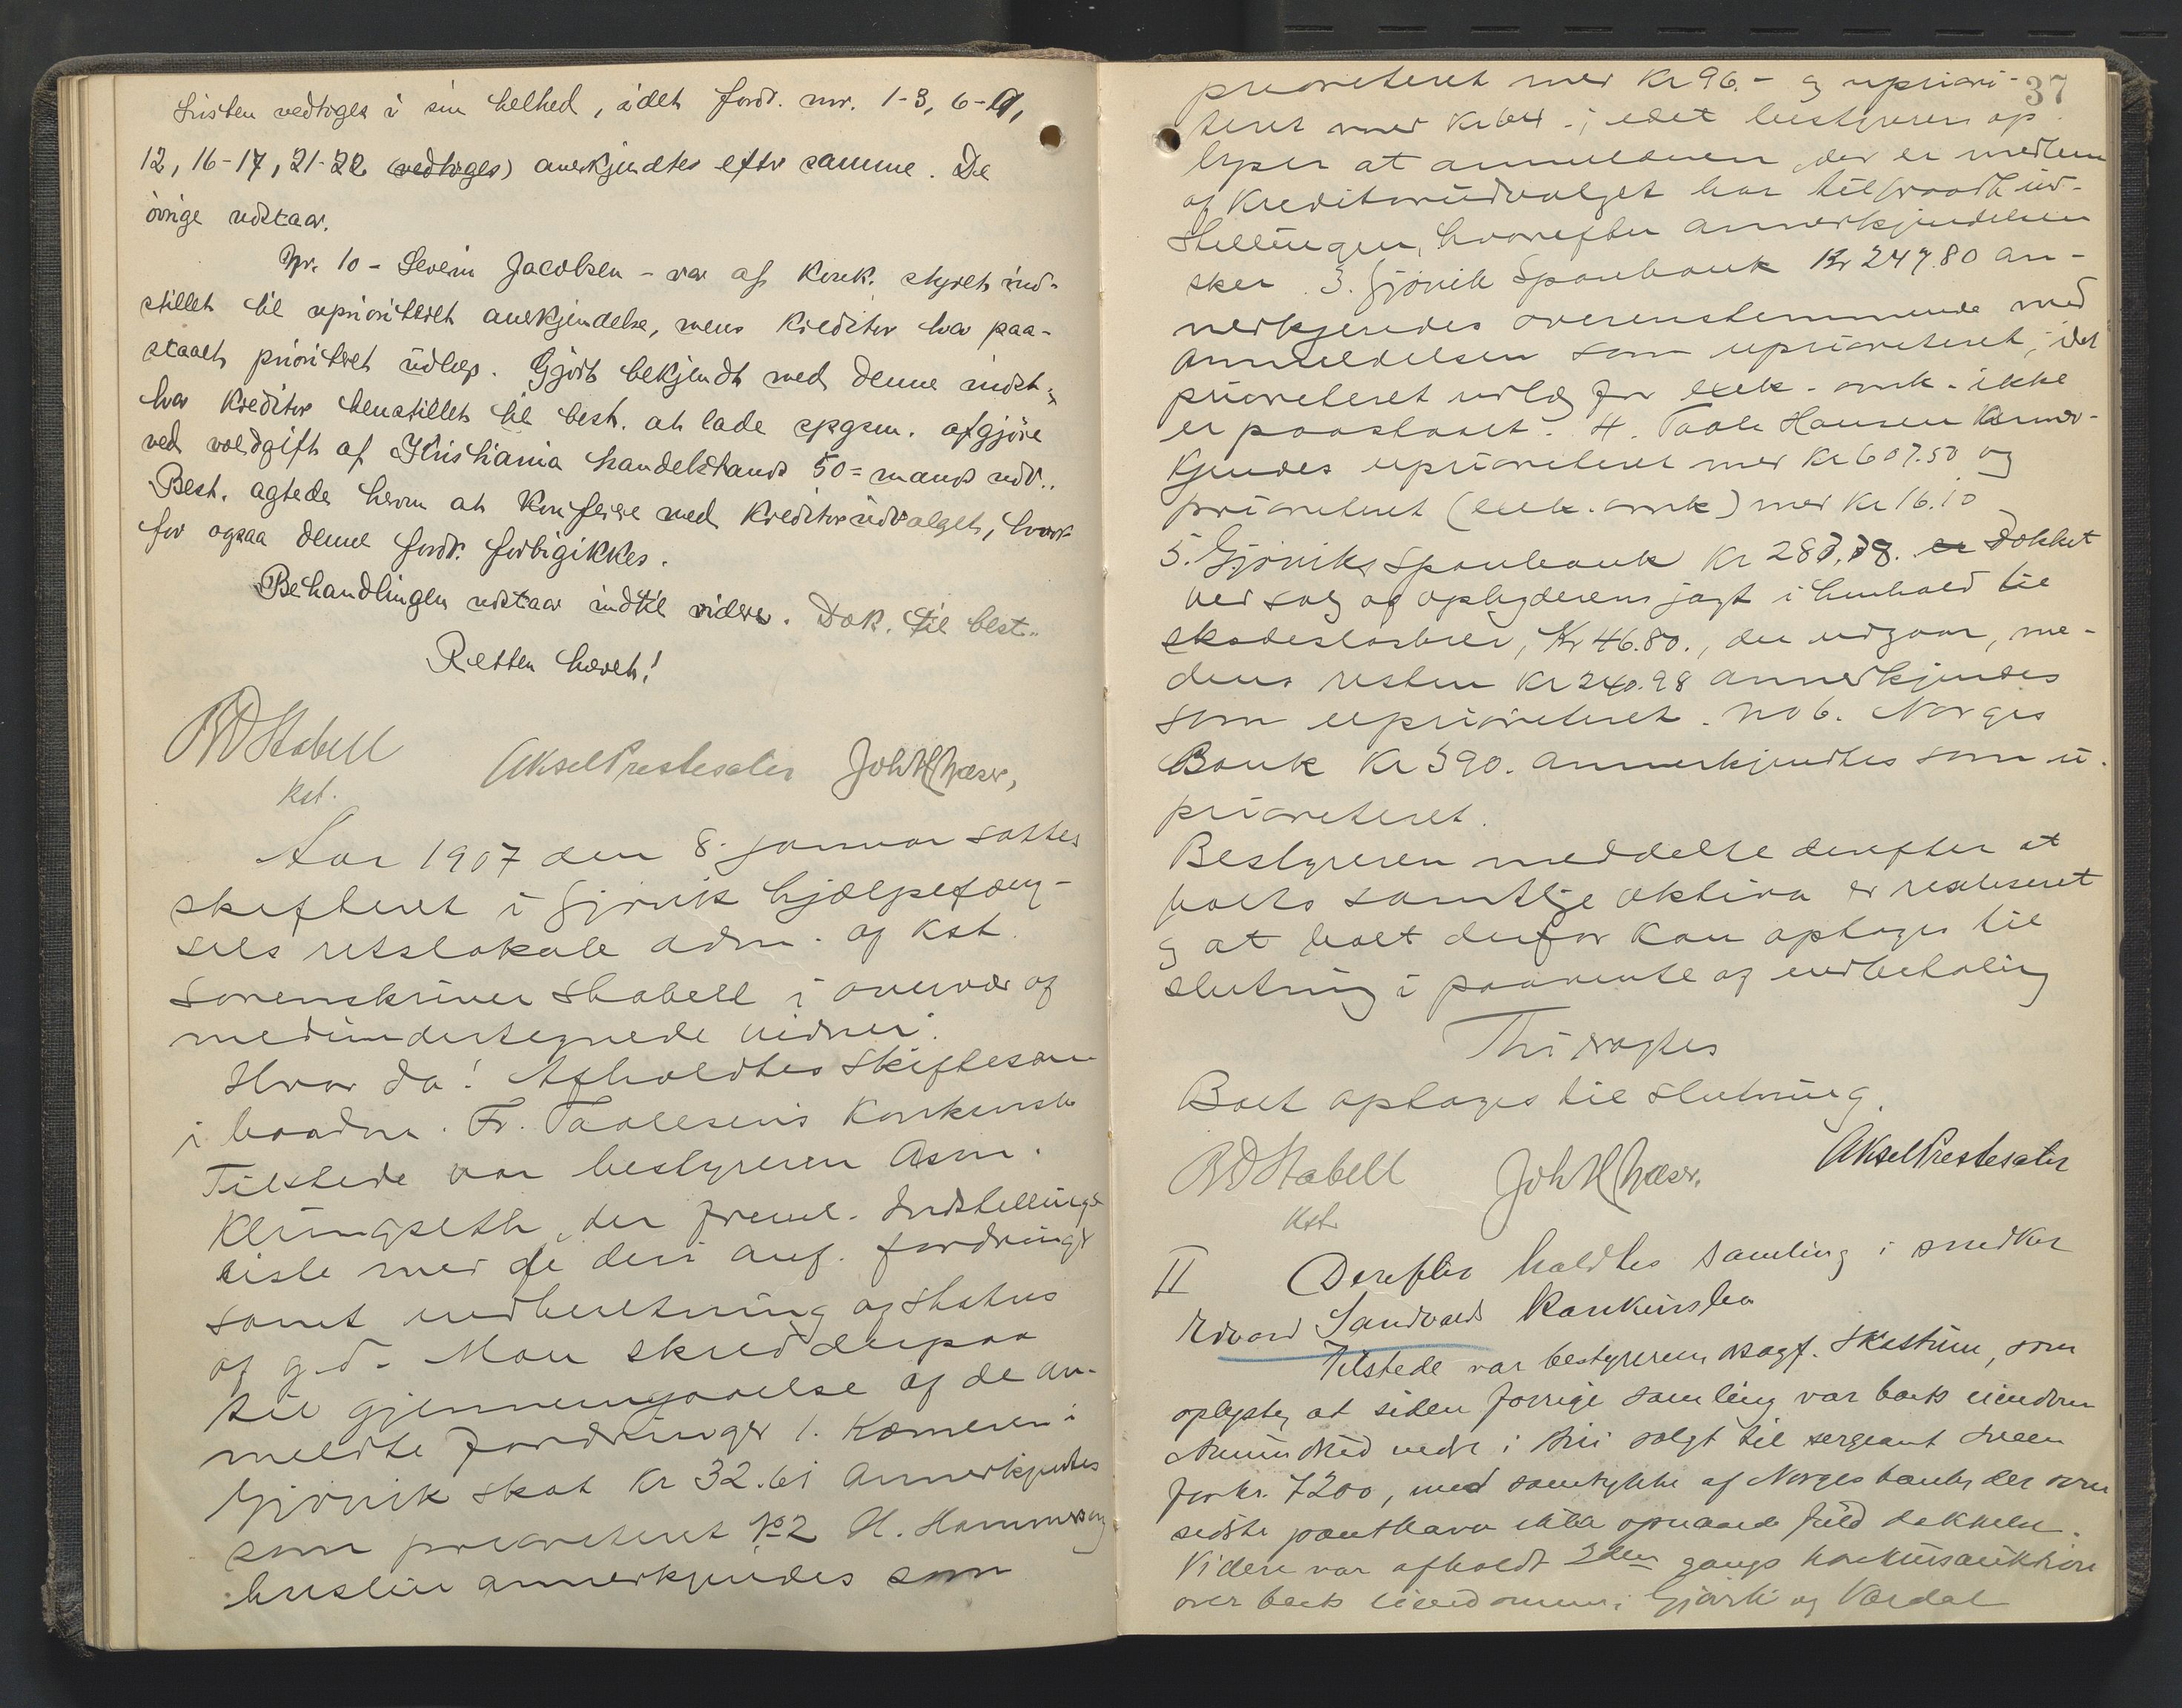 Listen vedtoges i sin helhed, idet ford. nr. 1-3, 6-9,
12, 16-17, 21-22 (vedtoges) anerkjendtes efter samme. De
övrige udstaar.
Nr. 10 - Severin Jacobsen - var af konk. styret ind-
stillet til uprioritert anerkjendelse, mens kreditor har paa-
staaet prioritert udlæg. Gjort bekjendt med denne indst.,
har kreditor henstillet til best. at lade spgsm. afgjöre
ved voldgift af Kristiania handelstands 50=mands udv..
Best. agtede herom at konferere med kreditorudvalget, hvor-
for ogsaa denne ford. forbigikkes.
Behandlingen udstaar indtil videre. Dok. til best..
Retten hævet!
BD Stabell
kst.
Aksel Prestesæter Joh H Næser,
Aar 1907 den 8. januar sattes
skifteret i Gjövik hjælpefæng-
sels retslokale adm. af kst.
sorenskriver Stabell i overvær af
medundertegnede vidner.
Hvor da! Afholdtes skiftesam
i baadm. Fr. Paalesens konkursbo
Tilstede var bestyreren Asm.
Klingseth, der freml. Indstillings
liste med de deri anf. fordringer
samt indberetning og status
af g.d. Man skred derpaa
til gjennemgaaelse af de an-
meldte fordringer 1. Kæmneren i
Gjövik skat Kr 32.61 annerkjendtes
som prioriteret No 2 H.
annerkjendes som
37
prioriteret med Kr 96.- og upriori-
teret med Kr 64 -; idet bestyreren op-
lyser at anmelderen der er medlem
af Kreditorudvalget har tilraadt ind-
stillingen, hvorefter annerkjendelsen
sker. 3. Gjövik Sparebank Kr 247.80 an-
nerkjendes overenstemmende med
Anmeldelsen som uprioriteret, idet
prioriteret udlæg for exek. omk. ikke
er paastaaet. 4. Paale Hansen Anner-
kjendes uprioriteret med Kr 607.50 og
prioriteret (exek. omk) med Kr 16.10
5. Gjöviks Sparebank Kr 287.78. er Dækket
ved salg af opbyderens jagt i henhold til
skadesløsbrev, Kr 46.80., der udgaar, me-
dens resten Kr 240.98 annerkjendes
som uprioriteret. No 6. Norges
Bank Kr 390. Annerkjendtes som u-
prioriteret.
Bestyreren meddelte derefter at
boets samtlige aktiva er realiseret
og at boet derfor kan optages til
slutning i paavente af indbetaling
Thi vragtes
Boet optages til slutning.
BD Stabell
kst.
Joh H Næser.
Aksel Prestesæter
II Derefter holdtes samling i snedker
Edvard Sandvolds konkursbo
Tilstede var bestyreren, osagf. Skattum, som
oplyste, at siden forrige samling var boets eiendom
nedre i Biri solgt til sergeant Sveen
for kr. 7200, med samtykke af Norges bank, der som
sidste panthaver ikke opnaaede fuld dækkelse.
Videre var afholdt 2den gangs konkursauktion
over boets eiendomme i Gjövik og Vardal